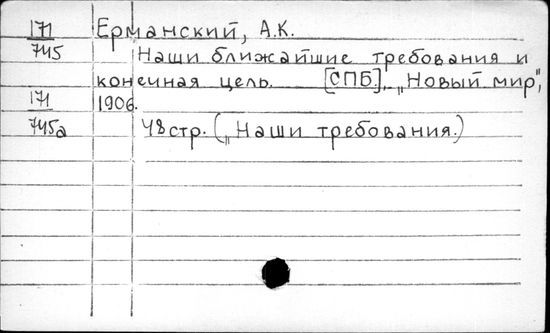 171 Ерманский, А.К.
745 Наши ближайшие требования и
конечная цель. [СПБ.], „Новый мир",
171 1906.
745а 48 стр. („Наши требования.)